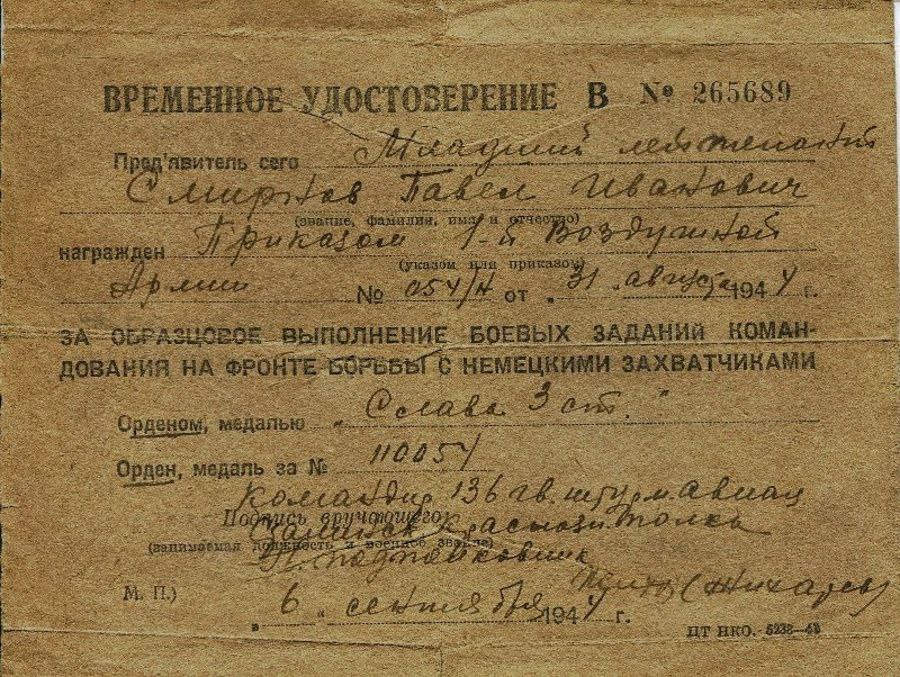 ВРЕМЕННОЕ УДОСТОВЕРЕНИЕ В № 265689
Пред'явитель сего Младший лейтенант
Смирнов Павел Иванович
(звание, фамилия, имя и отчество)
награжден Приказом 1-й Воздушной
(указом или приказом)
Армии № 054/н от „31„ августа 1944 г.
ЗА ОБРАЗЦОВОЕ ВЫПОЛНЕНИЕ БОЕВЫХ ЗАДАНИЙ КОМАН-
ДОВАНИЯ НА ФРОНТЕ БОРЬБЫ С НЕМЕЦКИМИ ЗАХВАТЧИКАМИ
Орденом, медалью „Слава 3 ст.“
Орден, медаль за № 110054
Командир 136 гв. штурм. авиац
Подпись вручающего
Краснозн. полка
(занимаемая должность и военное звание)
подполковник
М. П.)
„6„ сентября 1944 г.
ЦТ НКО.